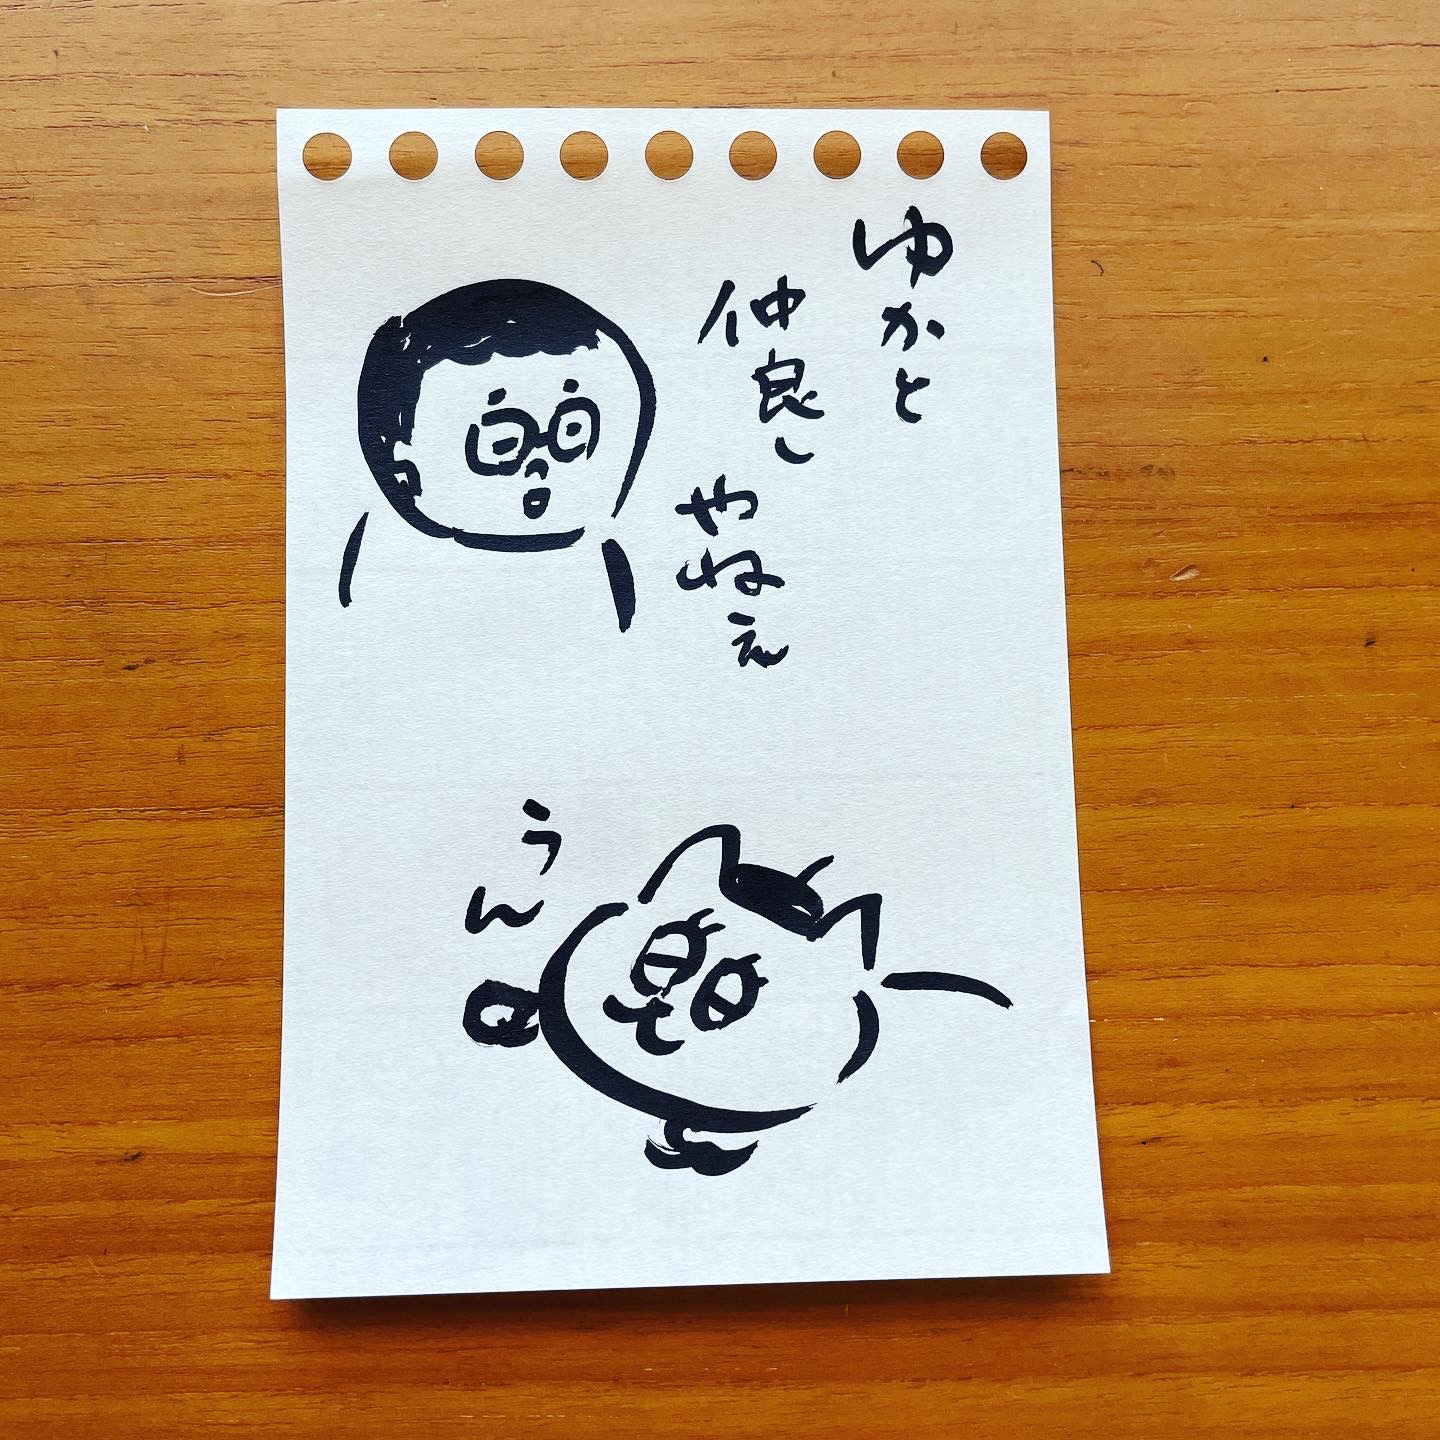 ゆかと
仲良し
やねぇ
うん